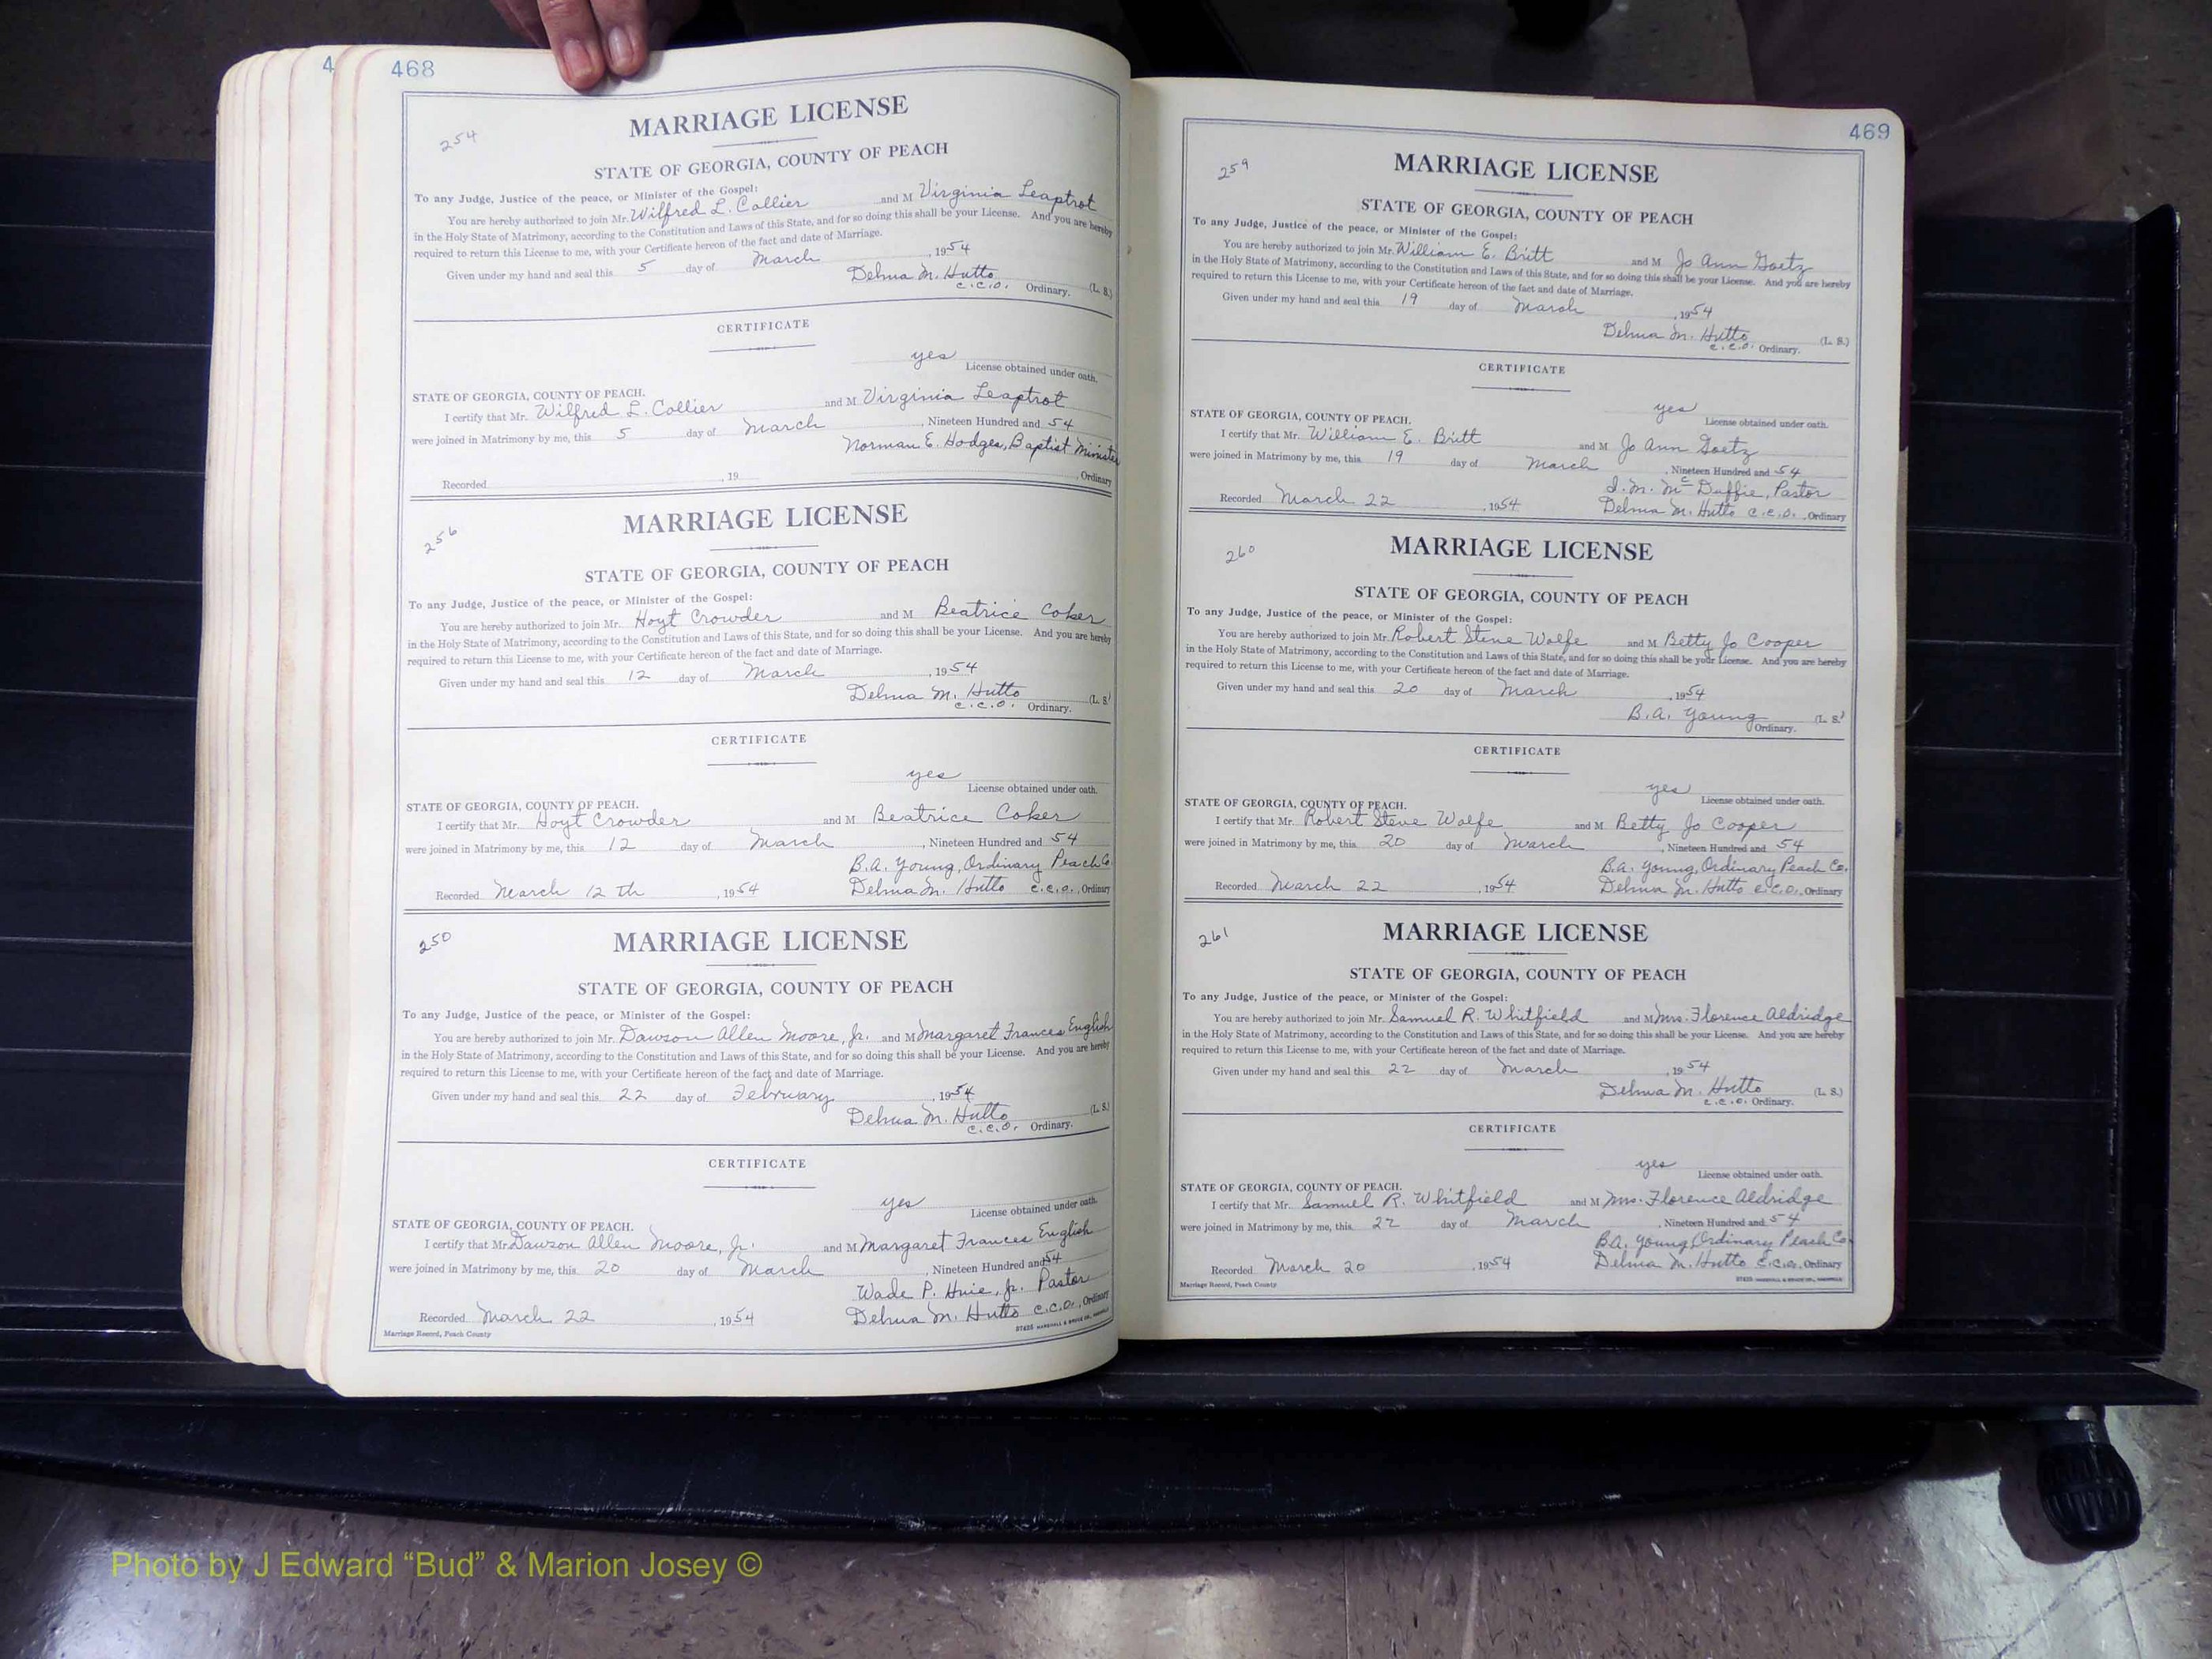 4
468
254
MARRIAGE LICENSE
STATE OF GEORGIA, COUNTY OF PEACH
To any Judge, Justice of the peace, or Minister of the Gospel:
You are hereby authorized to join Mr. Wilfred L. Collier and M Virginia Leaptrot
in the Holy State of Matrimony, according to the Constitution and Laws of this State, and for so doing this shall be your License. And you are hereby
required to return this License to me, with your Certificate hereon of the fact and date of Marriage.
Given under my hand and seal this 5 day of March, 1954
Delma M. Hutto
C.C.O. Ordinary. (L. S.)
CERTIFICATE
yes
License obtained under oath.
STATE OF GEORGIA, COUNTY OF PEACH.
I certify that Mr. Wilfred L. Collier and M Virginia Leaptrot
were joined in Matrimony by me, this 5 day of March, Nineteen Hundred and 54
Norman E. Hodges, Baptist Minister
Recorded , 19 , Ordinary
256
MARRIAGE LICENSE
STATE OF GEORGIA, COUNTY OF PEACH
To any Judge, Justice of the peace, or Minister of the Gospel:
You are hereby authorized to join Mr. Hoyt Crowder and M Beatrice Coker
in the Holy State of Matrimony, according to the Constitution and Laws of this State, and for so doing this shall be your License. And you are hereby
required to return this License to me, with your Certificate hereon of the fact and date of Marriage.
Given under my hand and seal this 12 day of March, 1954
Delma M. Hutto (L. S.)
C.C.O. Ordinary.
CERTIFICATE
yes
License obtained under oath.
STATE OF GEORGIA, COUNTY OF PEACH.
I certify that Mr. Hoyt Crowder and M Beatrice Coker
were joined in Matrimony by me, this 12 day of March, Nineteen Hundred and 54
B.A. Young, Ordinary Peach Co
Recorded March 12 th, 1954 Delma M. Hutto C.C.O., Ordinary
250
MARRIAGE LICENSE
STATE OF GEORGIA, COUNTY OF PEACH
To any Judge, Justice of the peace, or Minister of the Gospel:
You are hereby authorized to join Mr. Dawson Allen Moore, Jr. and M Margaret Frances English
in the Holy State of Matrimony, according to the Constitution and Laws of this State, and for so doing this shall be your License. And you are hereby
required to return this License to me, with your Certificate hereon of the fact and date of Marriage.
Given under my hand and seal this 22 day of February, 1954
Delma M. Hutto (L. S.)
C.C.O. Ordinary.
CERTIFICATE
yes
License obtained under oath.
STATE OF GEORGIA, COUNTY OF PEACH.
I certify that Mr. Dawson Allen Moore, Jr. and M Margaret Frances English
were joined in Matrimony by me, this 20 day of March, Nineteen Hundred and 54
Wade P. Huie, Jr. Pastor
Recorded March 22, 1954 Delma M. Hutto C.C.O., Ordinary
Marriage Record, Peach County
469
259
MARRIAGE LICENSE
STATE OF GEORGIA, COUNTY OF PEACH
To any Judge, Justice of the peace, or Minister of the Gospel:
You are hereby authorized to join Mr. William E. Britt and M Jo Ann Goetz
in the Holy State of Matrimony, according to the Constitution and Laws of this State, and for so doing this shall be your License. And you are hereby
required to return this License to me, with your Certificate hereon of the fact and date of Marriage.
Given under my hand and seal this 19 day of March, 1954
Delma M. Hutto (L. S.)
C.C.O. Ordinary.
CERTIFICATE
yes
License obtained under oath.
STATE OF GEORGIA, COUNTY OF PEACH.
I certify that Mr. William E. Britt and M Jo Ann Goetz
were joined in Matrimony by me, this 19 day of March, Nineteen Hundred and 54
McDuffie, Pastor
Recorded March 22, 1954 Delma M. Hutto C.C.O., Ordinary
260
MARRIAGE LICENSE
STATE OF GEORGIA, COUNTY OF PEACH
To any Judge, Justice of the peace, or Minister of the Gospel:
You are hereby authorized to join Mr. Robert Steve Wolfe and M Betty Jo Cooper
in the Holy State of Matrimony, according to the Constitution and Laws of this State, and for so doing this shall be your License. And you are hereby
required to return this License to me, with your Certificate hereon of the fact and date of Marriage.
Given under my hand and seal this 20 day of March, 1954
B.A. Young (L. S.)
Ordinary.
CERTIFICATE
yes
License obtained under oath.
STATE OF GEORGIA, COUNTY OF PEACH.
I certify that Mr. Robert Steve Wolfe and M Betty Jo Cooper
were joined in Matrimony by me, this 20 day of March, Nineteen Hundred and 54
B.A. Young, Ordinary Peach Co.
Recorded March 22, 1954 Delma M. Hutto C.C.O., Ordinary
261
MARRIAGE LICENSE
STATE OF GEORGIA, COUNTY OF PEACH
To any Judge, Justice of the peace, or Minister of the Gospel:
You are hereby authorized to join Mr. Samuel R. Whitfield and M Mrs. Florence Aldridge
in the Holy State of Matrimony, according to the Constitution and Laws of this State, and for so doing this shall be your License. And you are hereby
required to return this License to me, with your Certificate hereon of the fact and date of Marriage.
Given under my hand and seal this 22 day of March, 1954
Delma M. Hutto (L. S.)
C.C.O. Ordinary.
CERTIFICATE
yes
License obtained under oath.
STATE OF GEORGIA, COUNTY OF PEACH.
I certify that Mr. Samuel R. Whitfield and M Mrs. Florence Aldridge
were joined in Matrimony by me, this 22 day of March, Nineteen Hundred and 54
B.A. Young, Ordinary Peach Co
Recorded March 20, 1954 Delma M. Hutto C.C.O., Ordinary
Marriage Record, Peach County
Photo by J Edward “Bud” & Marion Josey ©